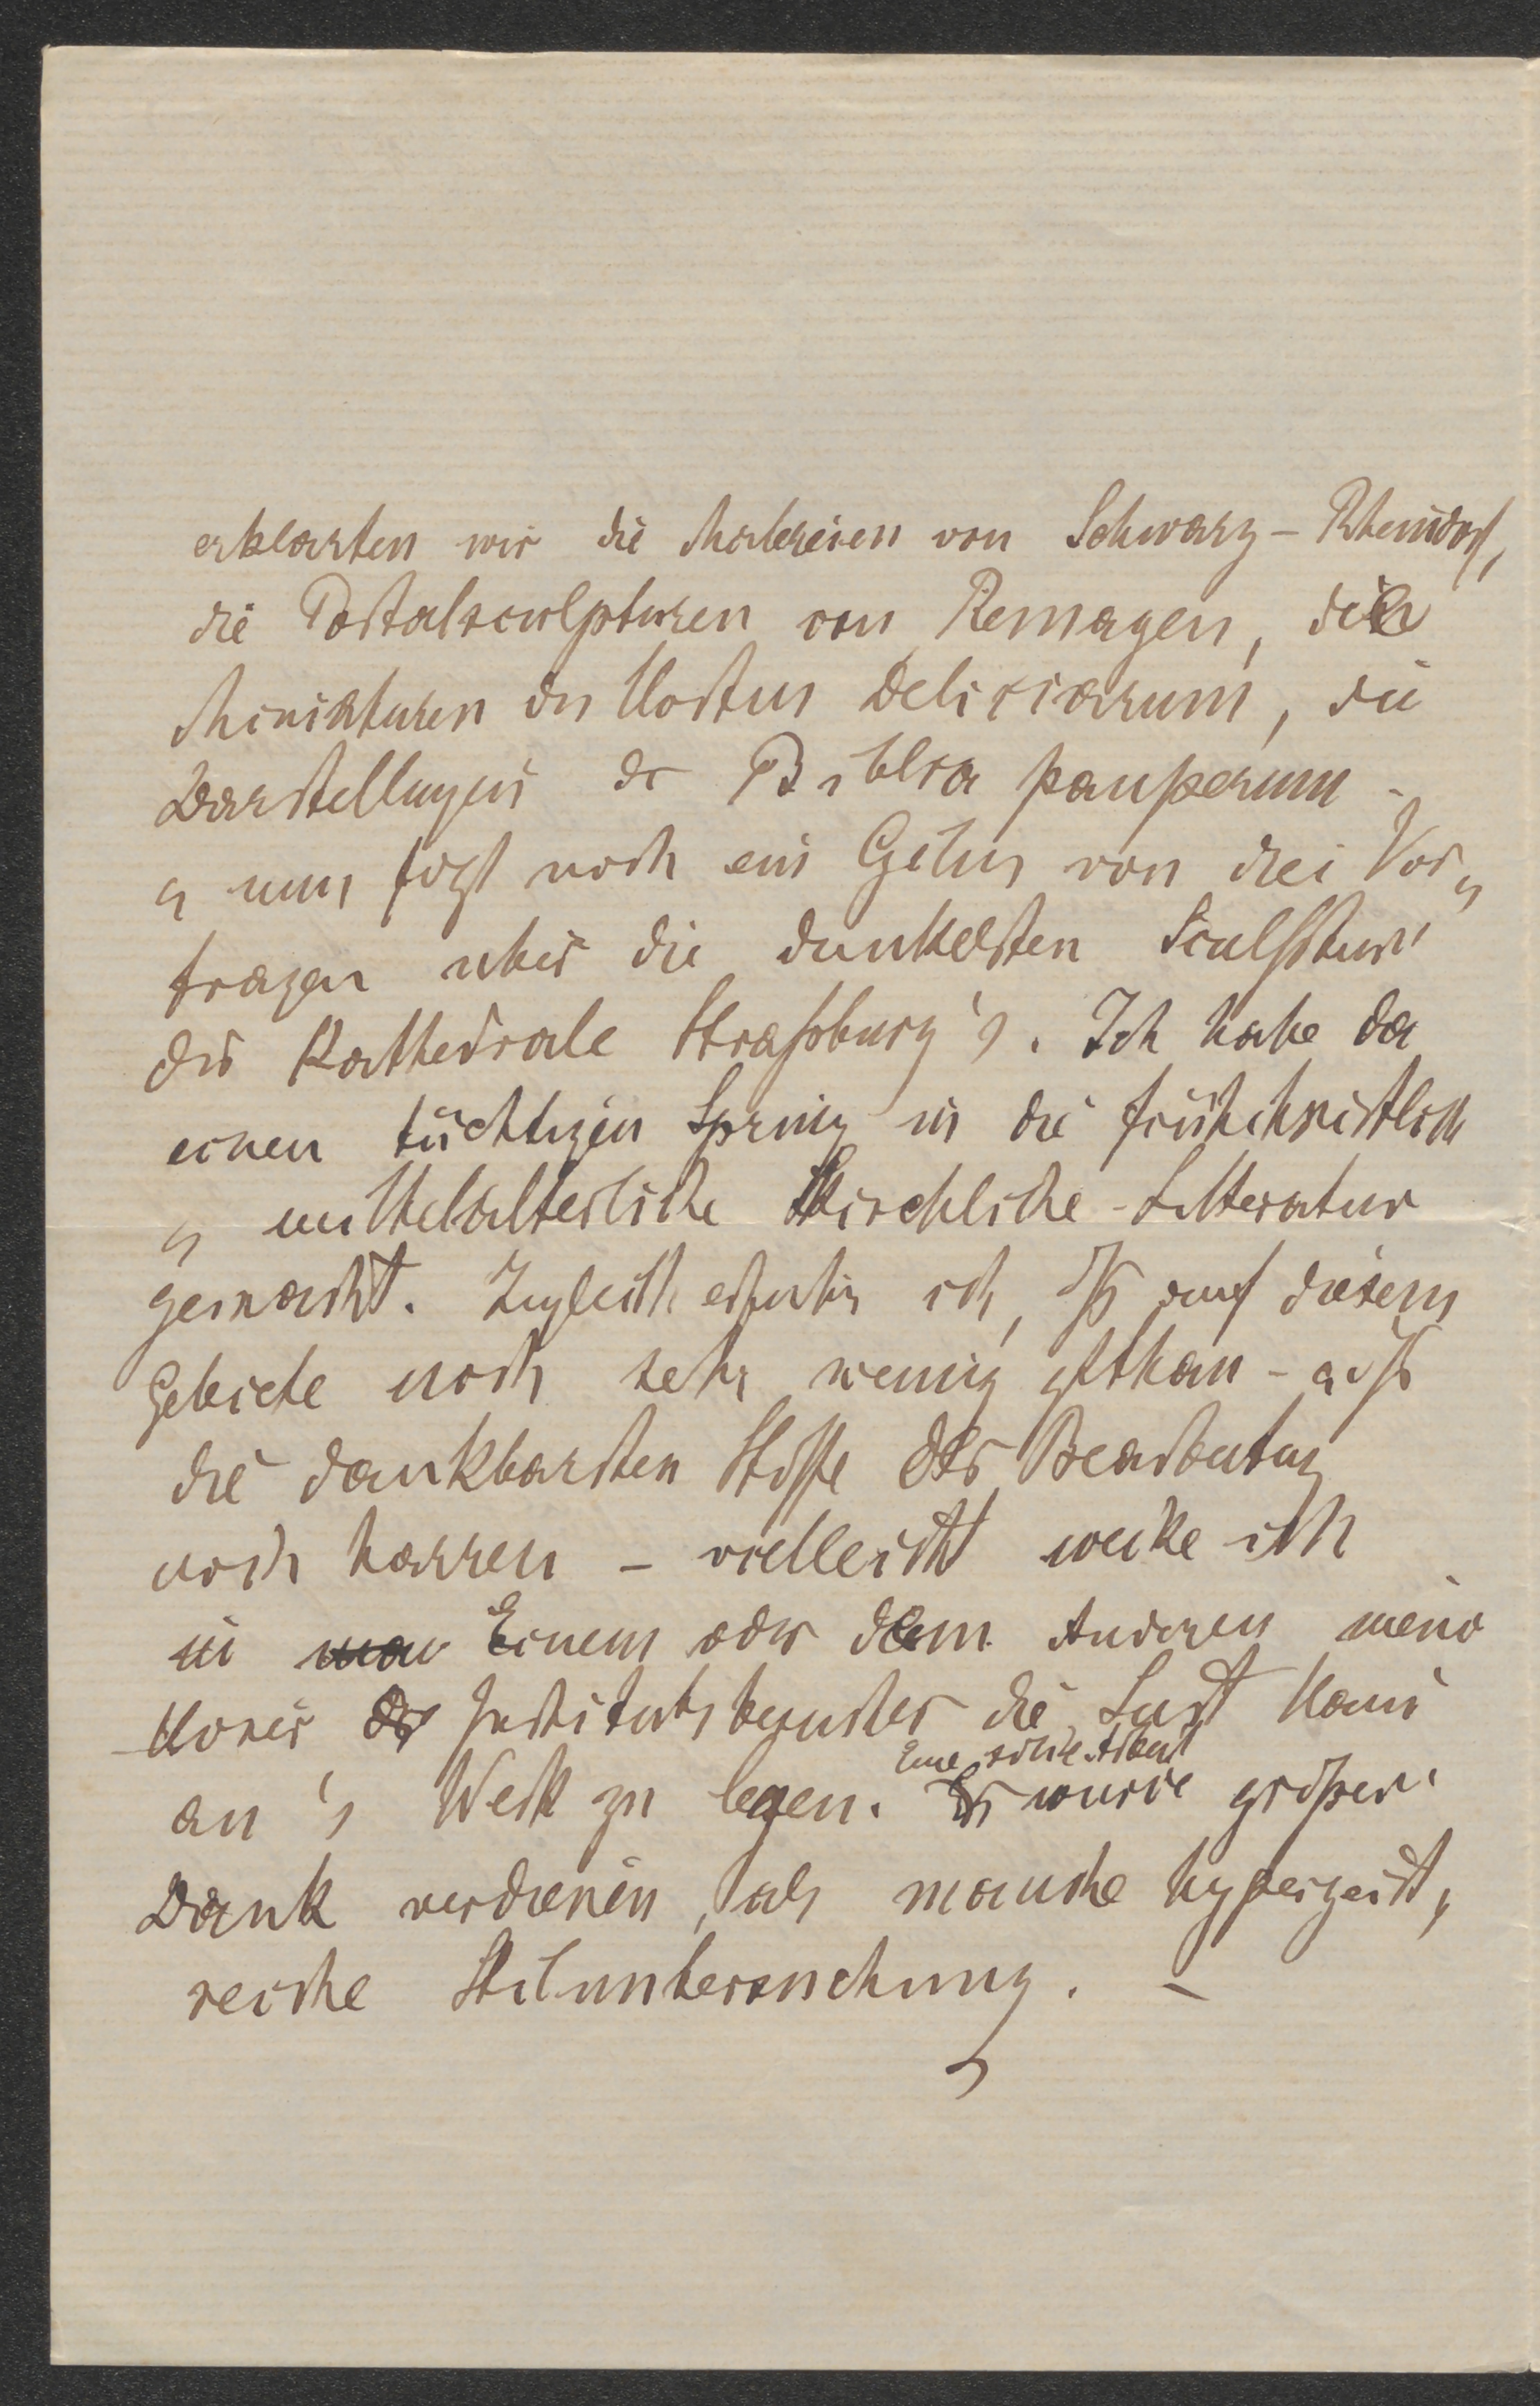 erklärten wir die Malereien von Schwarz-Rheindorf,
die Portalsculpturen von Remagen, die
Miniaturen des Hortus Deliciarum, die
Darstellungen der Biblia pauperum -
u nun folgt noch ein Cyclus von drei Vor„
trägen über die dunkelsten Sculpturen
der Kathedrale Straßburg's. Ich habe da
einen tüchtigen Sprung in die frühchristlich
u mittelalterliche kirchliche-Litteratur
gemacht. Zugleich erfuhr ich, dß auf diesem
Gebiete noch sehr wenig gethan - u dß
die dankbarsten Stoffe der Bearbeitung
noch harren - vielleicht wecke ich
in Einem oder dem Anderen meiner
Hörer der Institutsbesucher die Lust Hand
an's Werk zu legen. Eine solche Arbeit würde größeren
Dank verdienen, als manche hypergeist„
reiche Stiluntersuchung. -